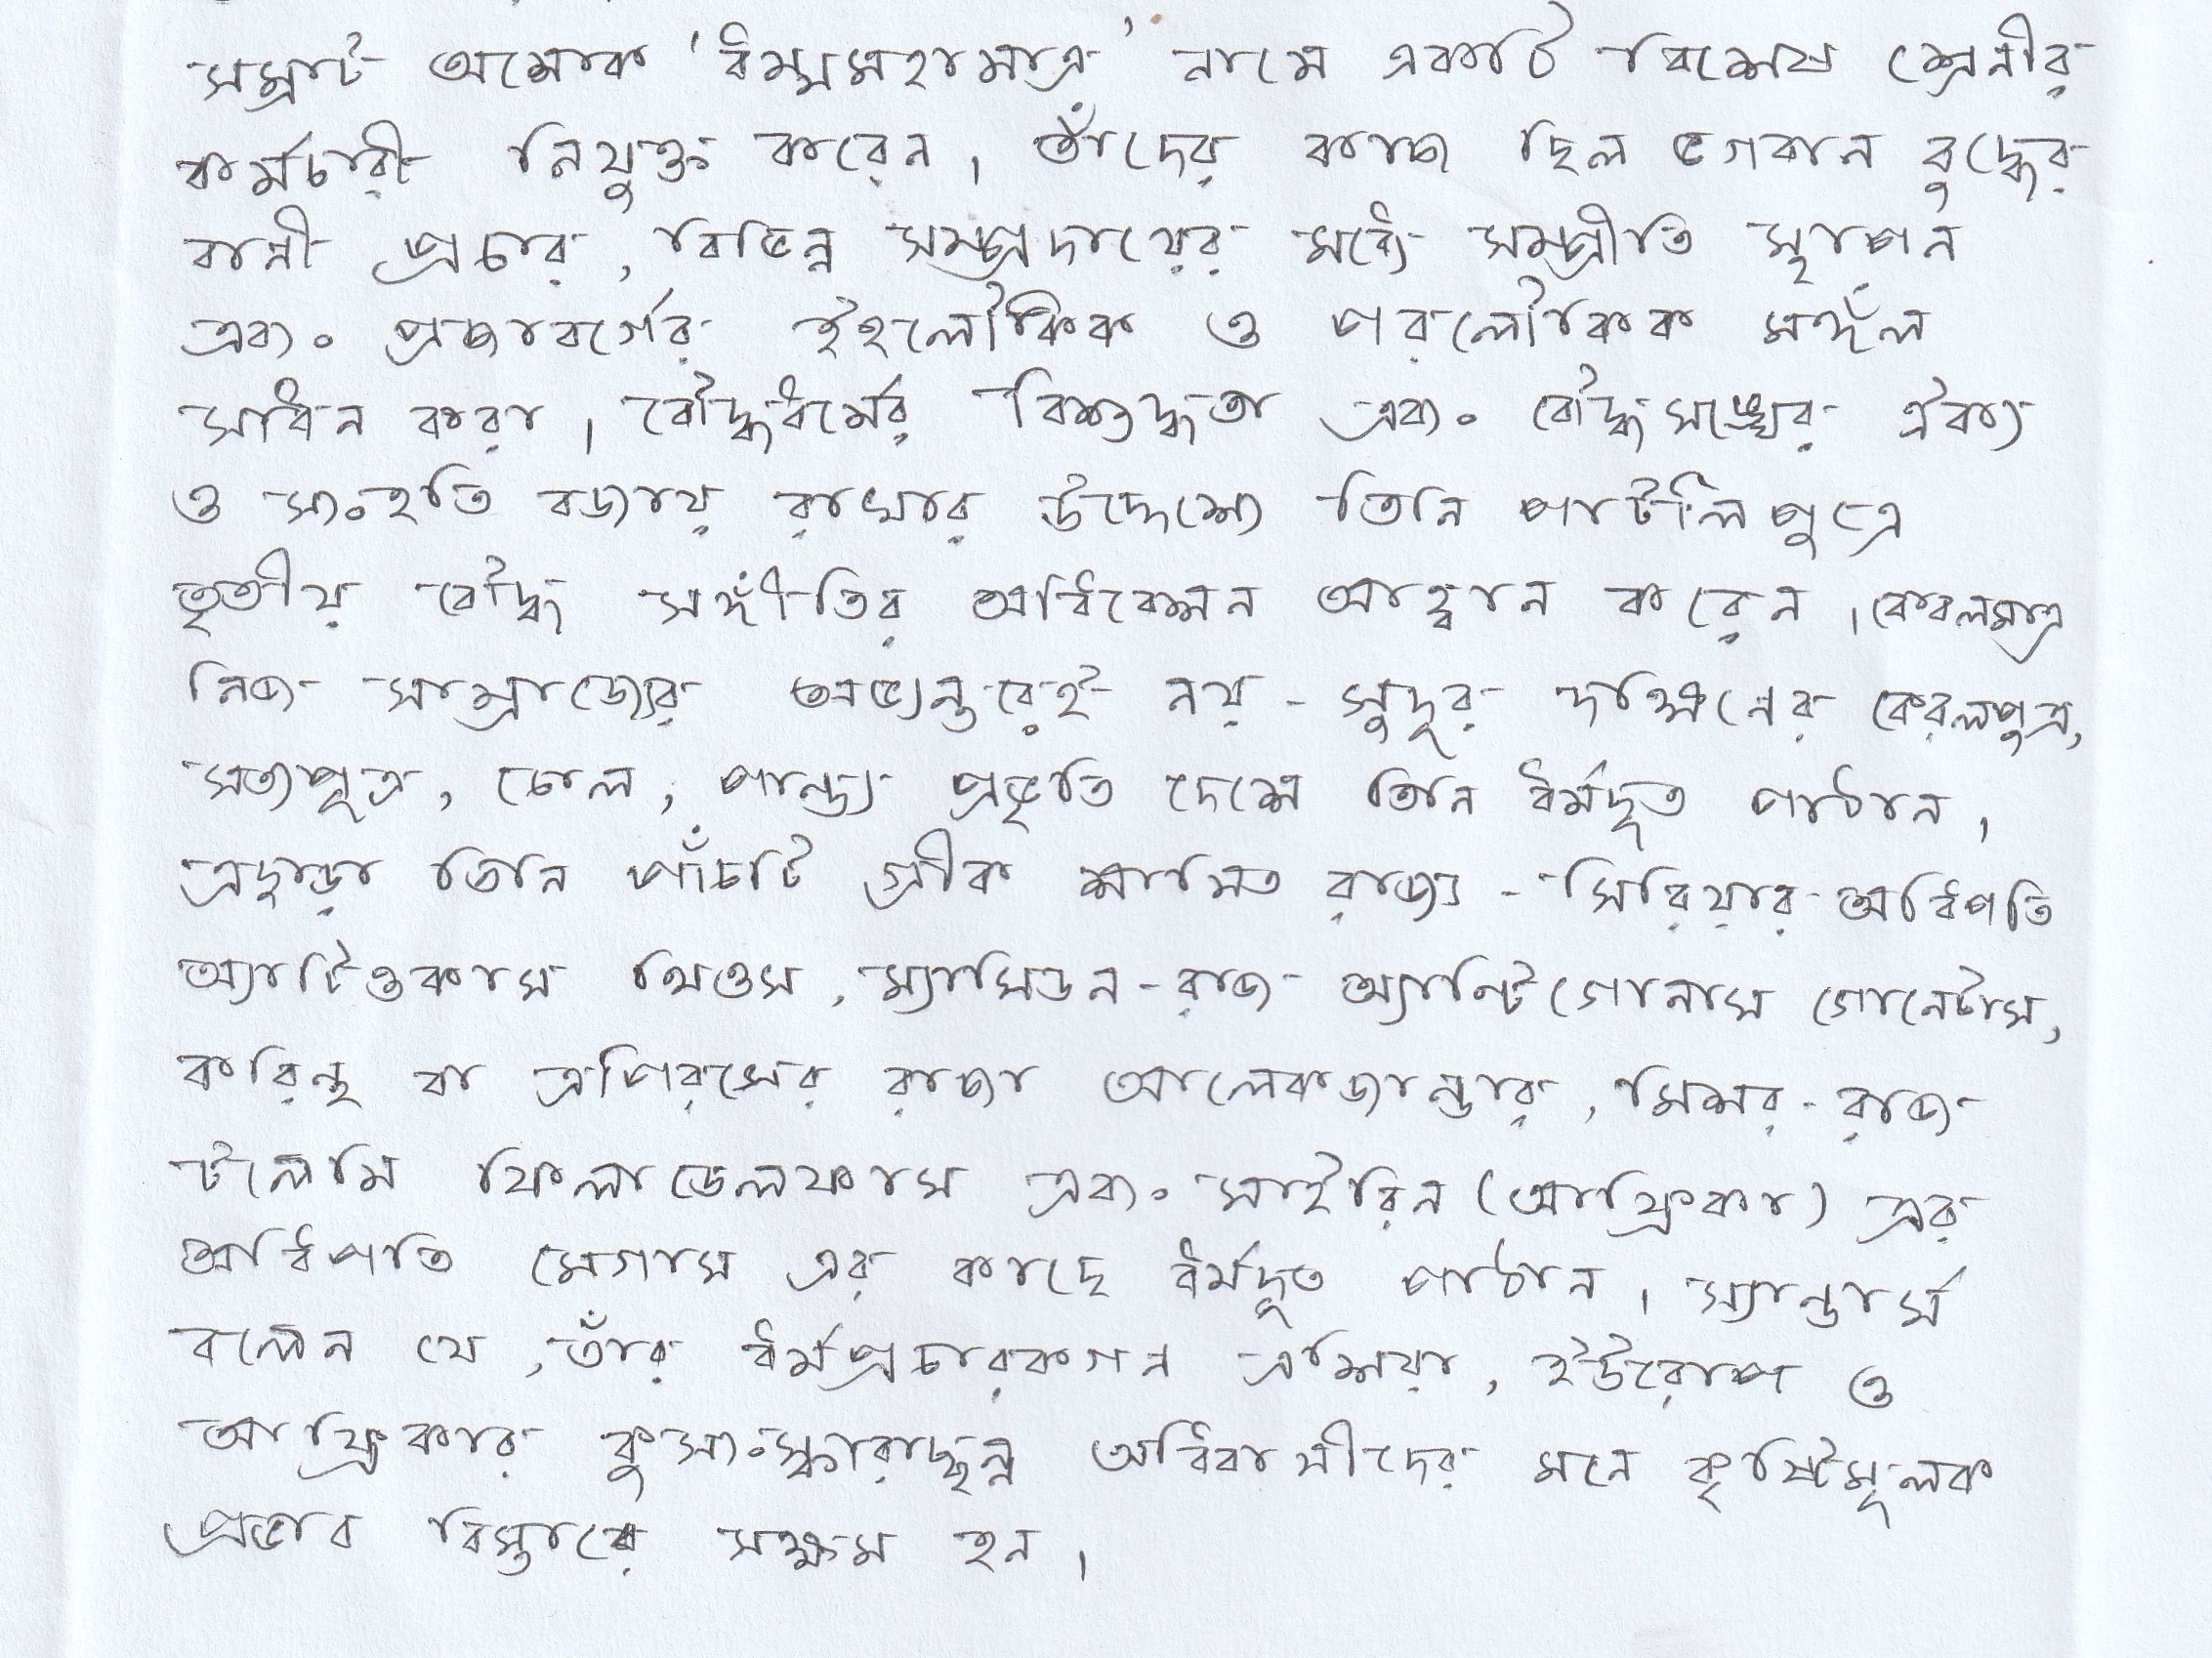 সম্রাট অশোক 'ধম্মমহামাত্র' নামে একটি বিশেষ শ্রেনীর
কর্মচারী নিযুক্ত করেন। তাঁদের কাজ ছিল ভগবান বুদ্ধের
বানী প্রচার, বিভিন্ন সম্প্রদায়ের মধ্যে সম্প্রীতি স্থাপন
এবং প্রজাবর্গের ইহলৌকিক ও পরলৌকিক মঙ্গল
সাধন করা। বৌদ্ধধর্মের বিশুদ্ধতা এবং বৌদ্ধসঙ্ঘের ঐক্য
ও সংহতি বজায় রাখার উদ্দেশ্যে তিনি পাটলিপুত্রে
তৃতীয় বৌদ্ধ সঙ্গীতির অধিবেশন আহ্বান করেন। কেবলমাত্র
নিজ সাম্রাজ্যের অভ্যন্তরেই নয় - সুদূর দক্ষিনের কেরলপুত্র,
সত্যপুত্র, চোল, পান্ড্য প্রভৃতি দেশে তিনি ধর্মদূত পাঠান।
এছাড়া তিনি পাঁচটি গ্রীক শাসিত রাজ্য - সিরিয়ার অধিপতি
অ্যাটিওকাস থিওস, ম্যাসিডন-রাজ অ্যান্টিগোনাস গোনেটাস,
করিন্থ বা এপিরসের রাজা আলেকজান্ডার, মিশর-রাজ
টলেমি ফিলাডেলফাস এবং সাইরিন (আফ্রিকা) এর
অধিপতি মেগাস এর কাছে ধর্মদূত পাঠান। স্যান্ডার্স
বলেন যে, তাঁর ধর্মপ্রচারকগন এশিয়া, ইউরোপ ও
আফ্রিকার কুসংস্কারাচ্ছন্ন অধিবাসীদের মনে কৃষ্টিমূলক
প্রভাব বিস্তারে সক্ষম হন।